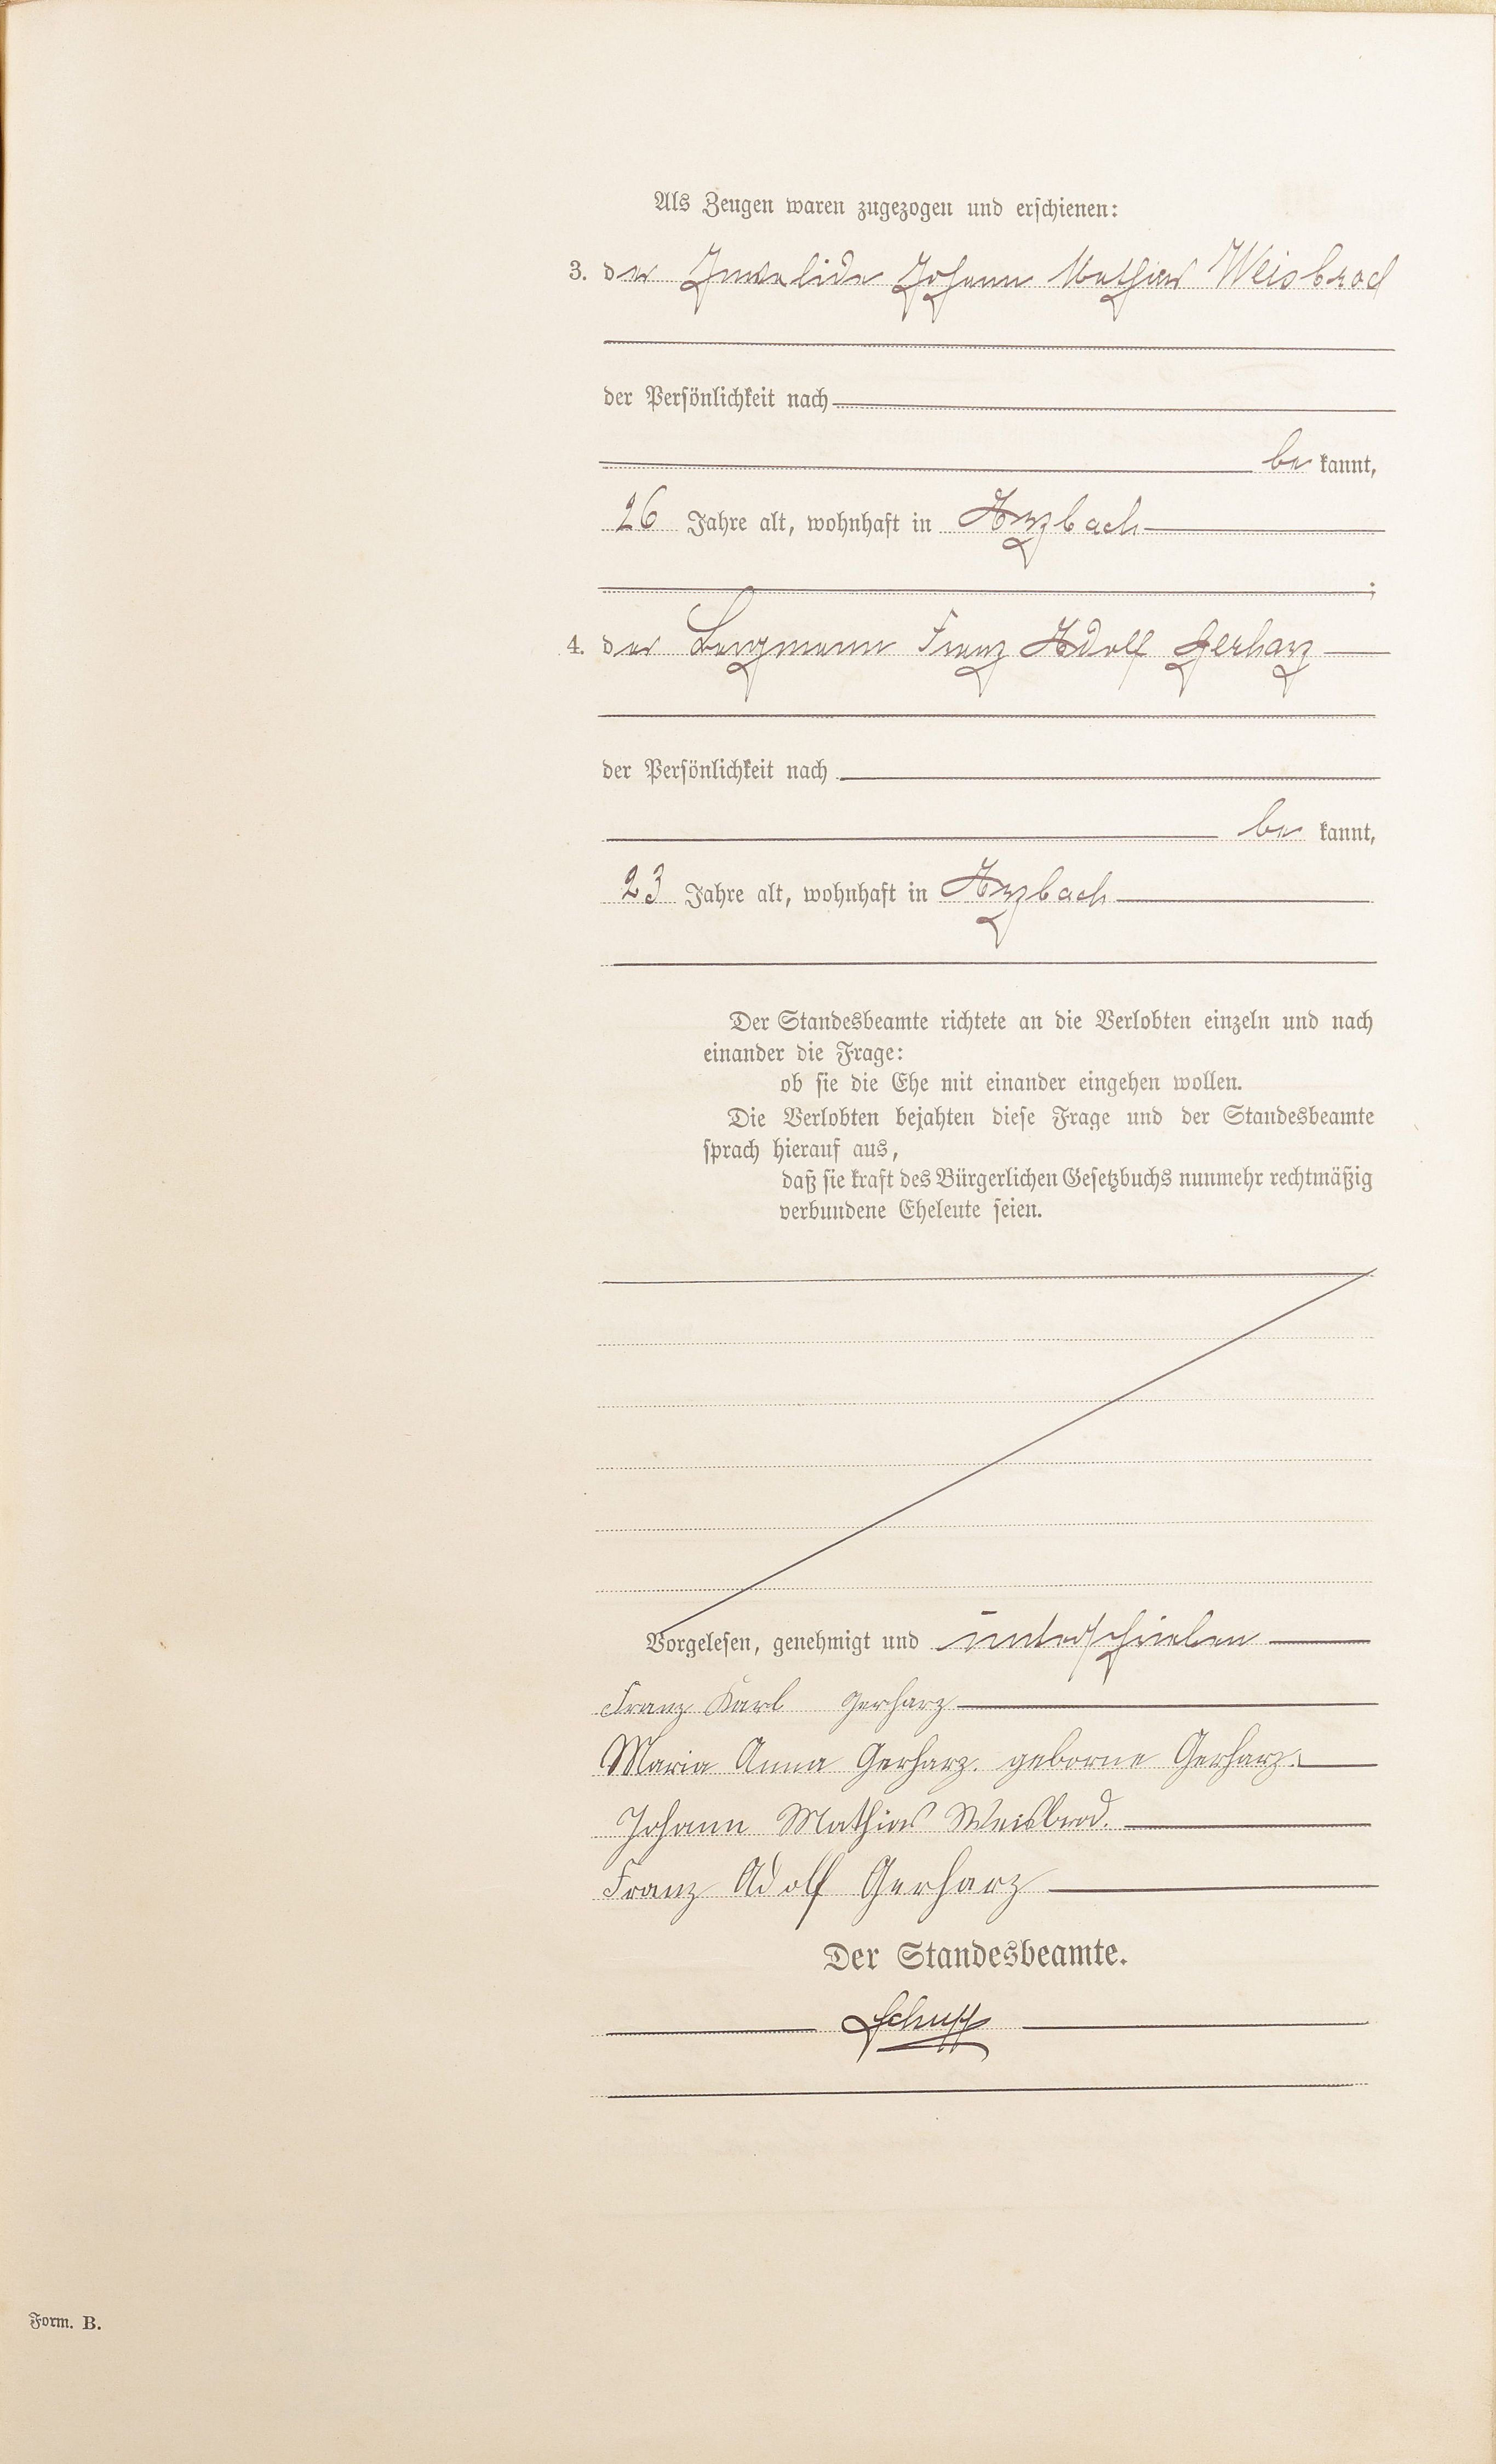 Als Zeugen waren zugezogen und erschienen:
3. der Invalide Johann Mathias Weisbrod
der Persönlichkeit nach
be kannt,
26 Jahre alt, wohnhaft in Arzbach
;
4. der Bergmann Franz Adolf Gerharz
der Persönlichkeit nach
be kannt,
23 Jahre alt, wohnhaft in Arzbach
Der Standesbeamte richtete an die Verlobten einzeln und nach
einander die Frage:
ob sie die Ehe mit einander eingehen wollen.
Die Verlobten bejahten diese Frage und der Standesbeamte
sprach hierauf aus,
daß sie kraft des Bürgerlichen Gesetzbuchs nunmehr rechtmäßig
verbundene Eheleute seien.
Vorgelesen, genehmigt und unterschrieben
Franz Karl Gerharz
Maria Anna Gerharz. geborne Gerharz.
Johann Mathias Weisbrod.
Franz Adolf Gerharz
Der Standesbeamte.
Schupp
Form. B.